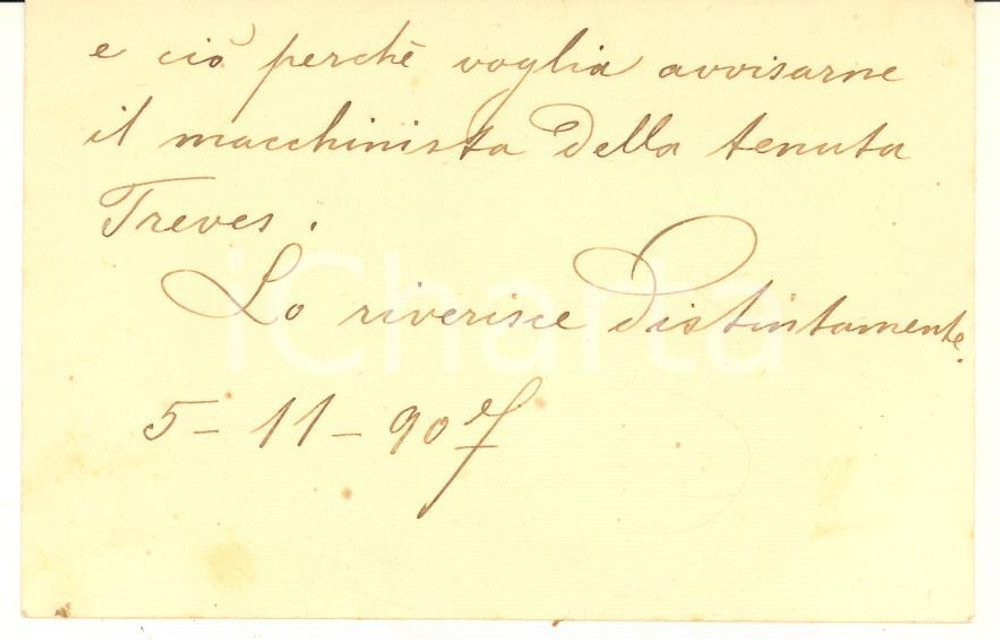 e ciò perchè voglia avvisarne
il macchinista della tenuta
Treves.
Lo riverisce distintamente.
5 - 11 - 907
iCharta